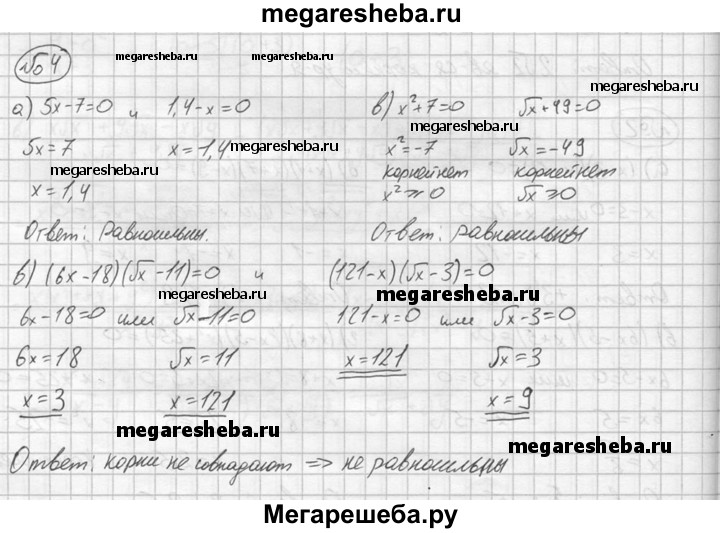 megaresheba.ru
№04 megaresheba.ru megaresheba.ru
а) 5x-7=0 и 1,4-x=0
5x=7 x=1,4 megaresheba.ru
megaresheba.ru
x=1,4
Ответ: Равносильны.
megaresheba.ru
в) x²+7=0 √x+49=0
megaresheba.ru
x²=-7 √x=-49
корней нет корней нет
megaresheba.ru
x²⩾0 √x⩾0
Ответ: равносильны
б) (6x-18)(√x-11)=0 и (121-x)(√x-3)=0
megaresheba.ru megaresheba.ru
6x-18=0 или √x-11=0 121-x=0 или √x-3=0
6x=18 √x=11 x=121 √x=3
x=3 x=121 x=9
megaresheba.ru megaresheba.ru
Ответ: корни не совпадают => не равносильны
Мегарешеба.ру